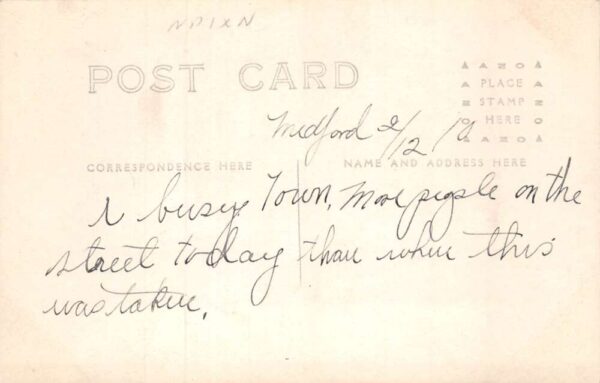 POST CARD
AZO
PLACE
STAMP
HERE
AZO
Medford 2/12/10
CORRESPONDENCE HERE
NAME AND ADDRESS HERE
A busy Town, More people on the
street today than when this
was taken.